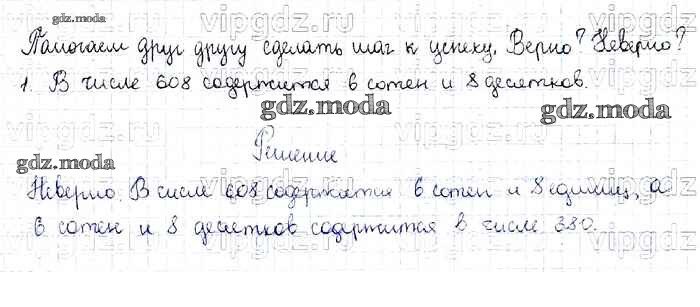 gdz.moda
Помогаем друг другу сделать шаг к успеху. Верно? Неверно?
1. В числе 608 содержится 6 сотен и 8 десятков.
gdz.moda
gdz.moda
Решение
gdz.moda
Неверно. В числе 608 содержится 6 сотен и 8 единиц, а
6 сотен и 8 десятков содержится в числе 380.
vipgdz.ru